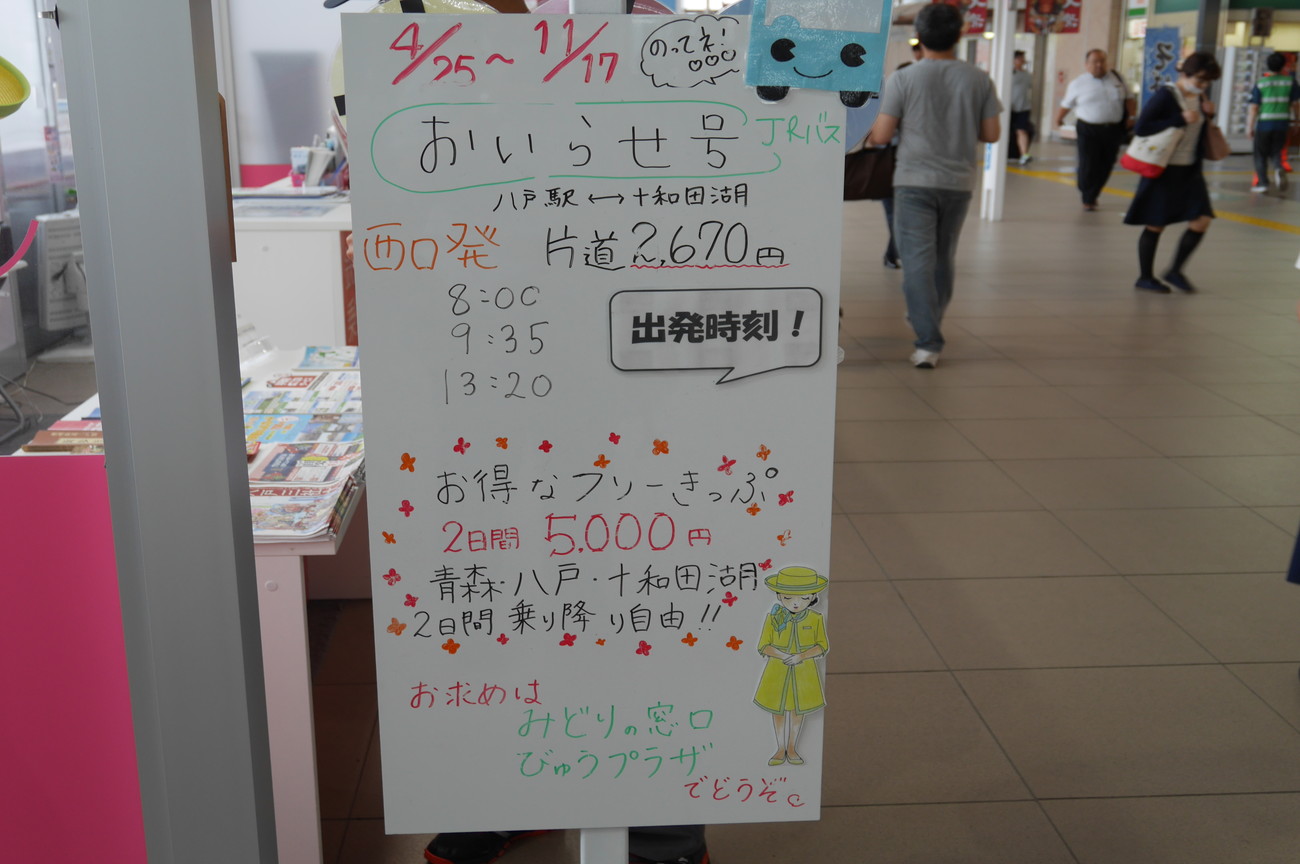 4/25~11/17
のってネ!
おいらせ号
JRバス
八戸駅↔十和田湖
西口発 片道2,670円
8:00
9:35
13:20
出発時刻!
お得なフリーきっぷ
2日間 5,000円
青森・八戸・十和田湖
2日間乗り降り自由!!
お求めは
みどりの窓口
びゅうプラザ
でどうぞ